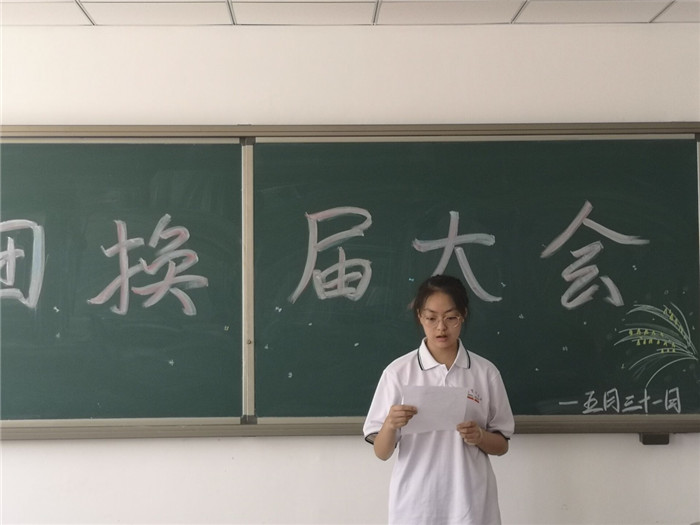 团换届大会
一五月三十一日